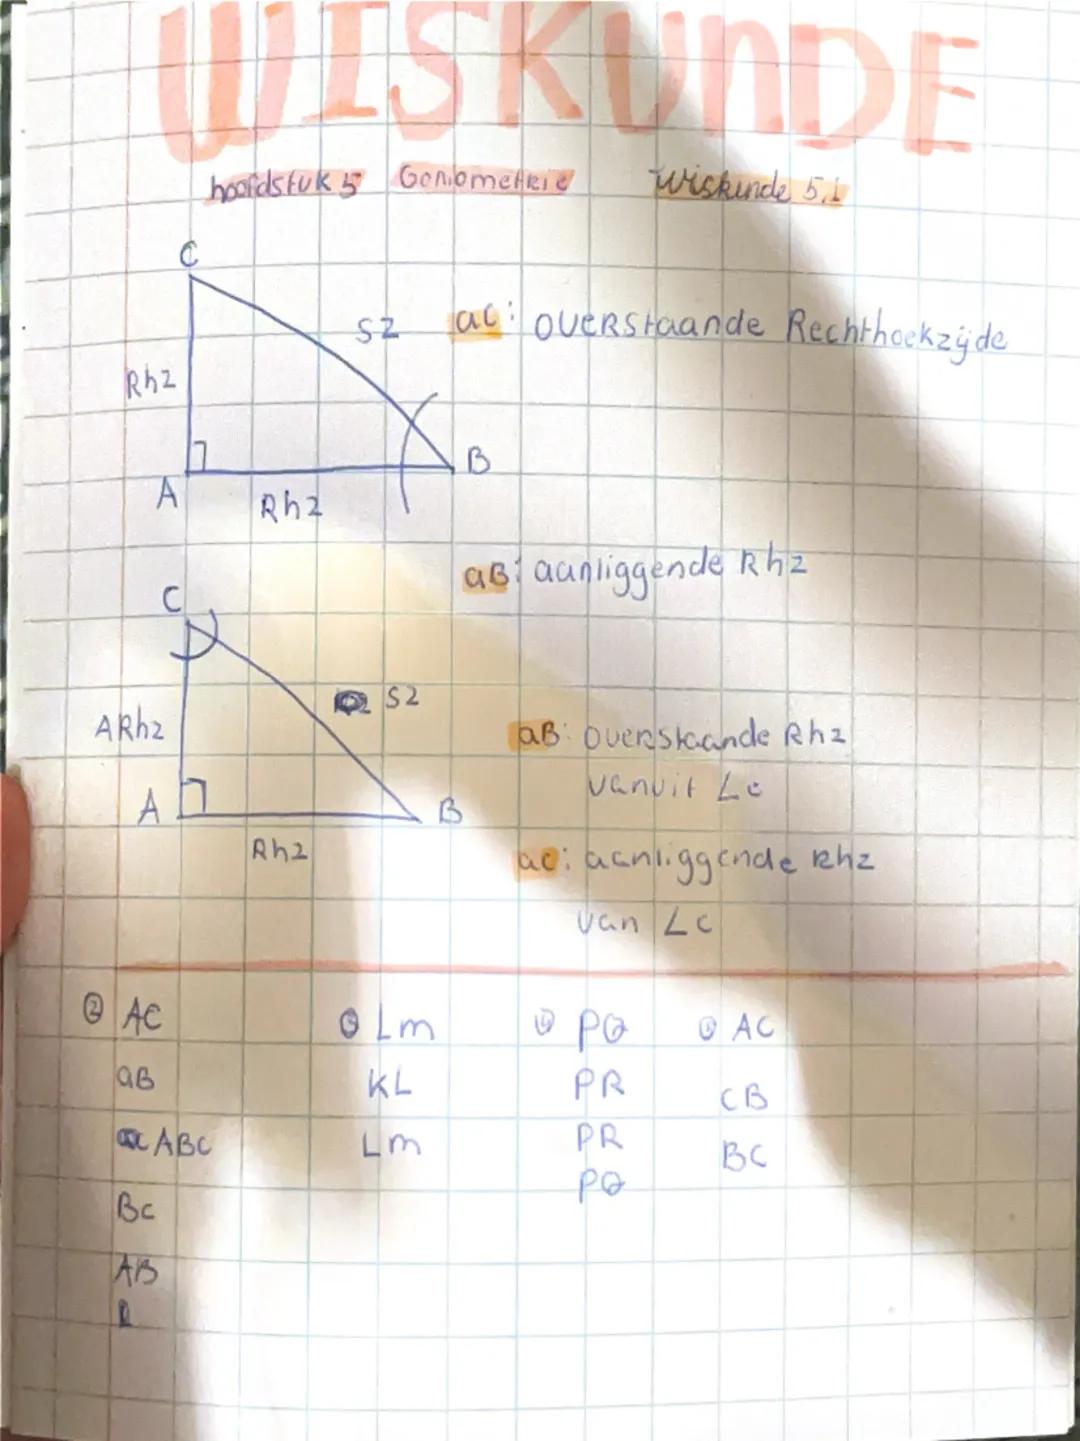 WISKUNDE
hoofdstuk 5 Goniometrie Wiskunde 5.1
C
SZ
aC: OVERStaande Rechthoekzijde
Rhz
B
A
Rhz
aB: aanliggende Rhz
C
SZ
ARhz
aB: Overstaande Rhz
vanuit ∠c
A
B
Rhz
ac: aanliggende Rhz
van ∠c
② AC
aB
ABC
BC
AB
R
Lm
KL
Lm
PQ
PR
PR
PQ
AC
CB
BC